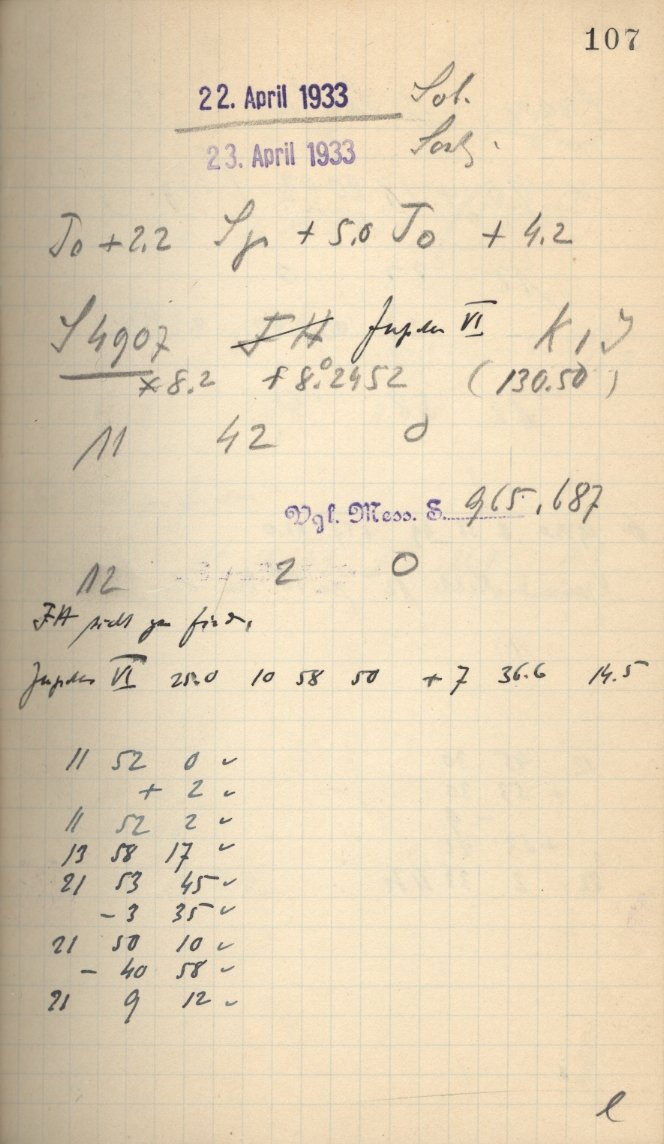 107
22. April 1933 Sol.
23. April 1933
To +2.2 Sp +5.0 To +4.2
S 4907 FH Jupiter VI K, J
×8.2 +8.°2452 (130.50)
11 42 0
Vgl. Mess. S. 965,687
12 2 0
FH nicht zu finden,
Jupiter VI 25.0 10 58 50 +7 36.6 14.5
11 52 0 ✓
+ 2 ✓
11 52 2 ✓
13 58 17 ✓
21 53 45 ✓
-3 35 ✓
21 50 10 ✓
- 40 58 ✓
21 9 12 ✓
l